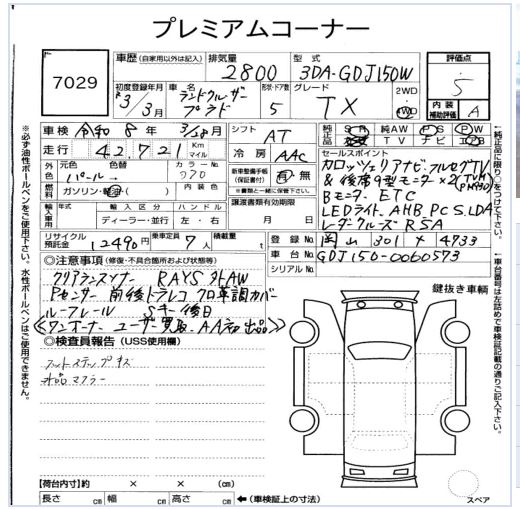 プレミアムコーナー
7029
車歴 (自家用以外は記入) 排気量 2800 型式 3DA-GDJ150W
評価点 5
初度登録年月 3/3月 車名 ランドクルーザー プラド 形状・ドア数 5 グレード TX 2WD 4WD
内装補助評価 A
車検 令和 8年 3/ 月 シフト AT
走行 42721 Km マイル 冷房 AAC
純正品 SR 純AW PS PW
TV ナビ
外色 元色 パール 色替 カラーNo. 070
燃料 ガソリン・軽油 内装色
新車整備手帳 (保証書付) 有・無
※書類と一緒に保管下さい。
セールスポイント
カロッツェリアナビ、フルセグTV
& 後席9型モニター×2
Bモニター ETC
LEDライト AHB PCS. LDA
レーダクルーズ RSA
輸入車用 年式 輸入区分 ハンドル
ディーラー・並行 左・右
譲渡書類有効期限
月 日
リサイクル預託金 12490円 乗車定員 7人 積載量 t
登録No. 岡山 301 4733
車台No. GDJ150-0060573
シリアルNo.
◎注意事項 (修復・不具合箇所および状態等)
クリアランスソナー RAYS 外AW
Pセンサー 前後ドラレコ クロ革調カバー
ルーフレール Sキー後日
《ワンオーナー ユーザー買取. AA初出品》
◎検査員報告 (USS使用欄)
フットステップキズ
社品マフラー
鍵抜き車輌
スペア
【荷台内寸】約 × × (cm)
長さ cm 幅 cm 高さ cm ←(車検証上の寸法)
※必ず油性ボールペンをご使用下さい。水性ボールペンはご使用できません。
←純正品に限り○をつけて下さい。
←車台番号は左詰めで車検証記載の通りご記入下さい。